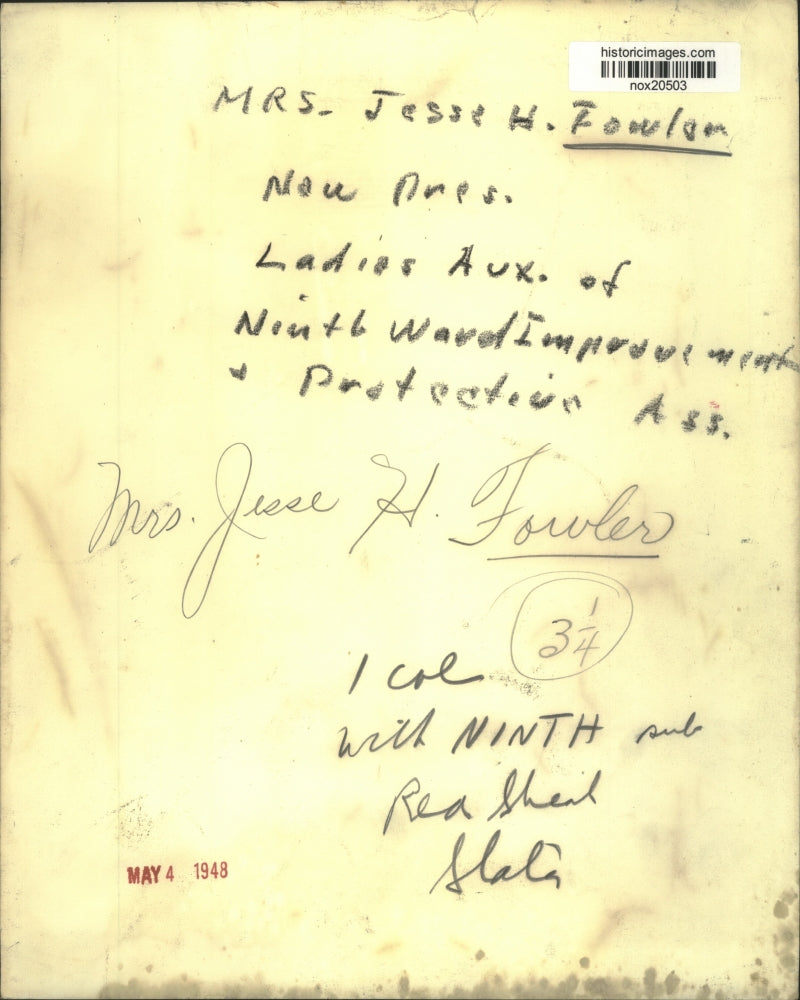 historicimages.com
nox20503
MRS. Jesse H. Fowler
New Pres.
Ladies Aux. of
Ninth Ward Improvement
+ Protective Ass.
Mrs. Jesse H. Fowler
3 1/4
1 col
with NINTH sub
Red
MAY 4 1948